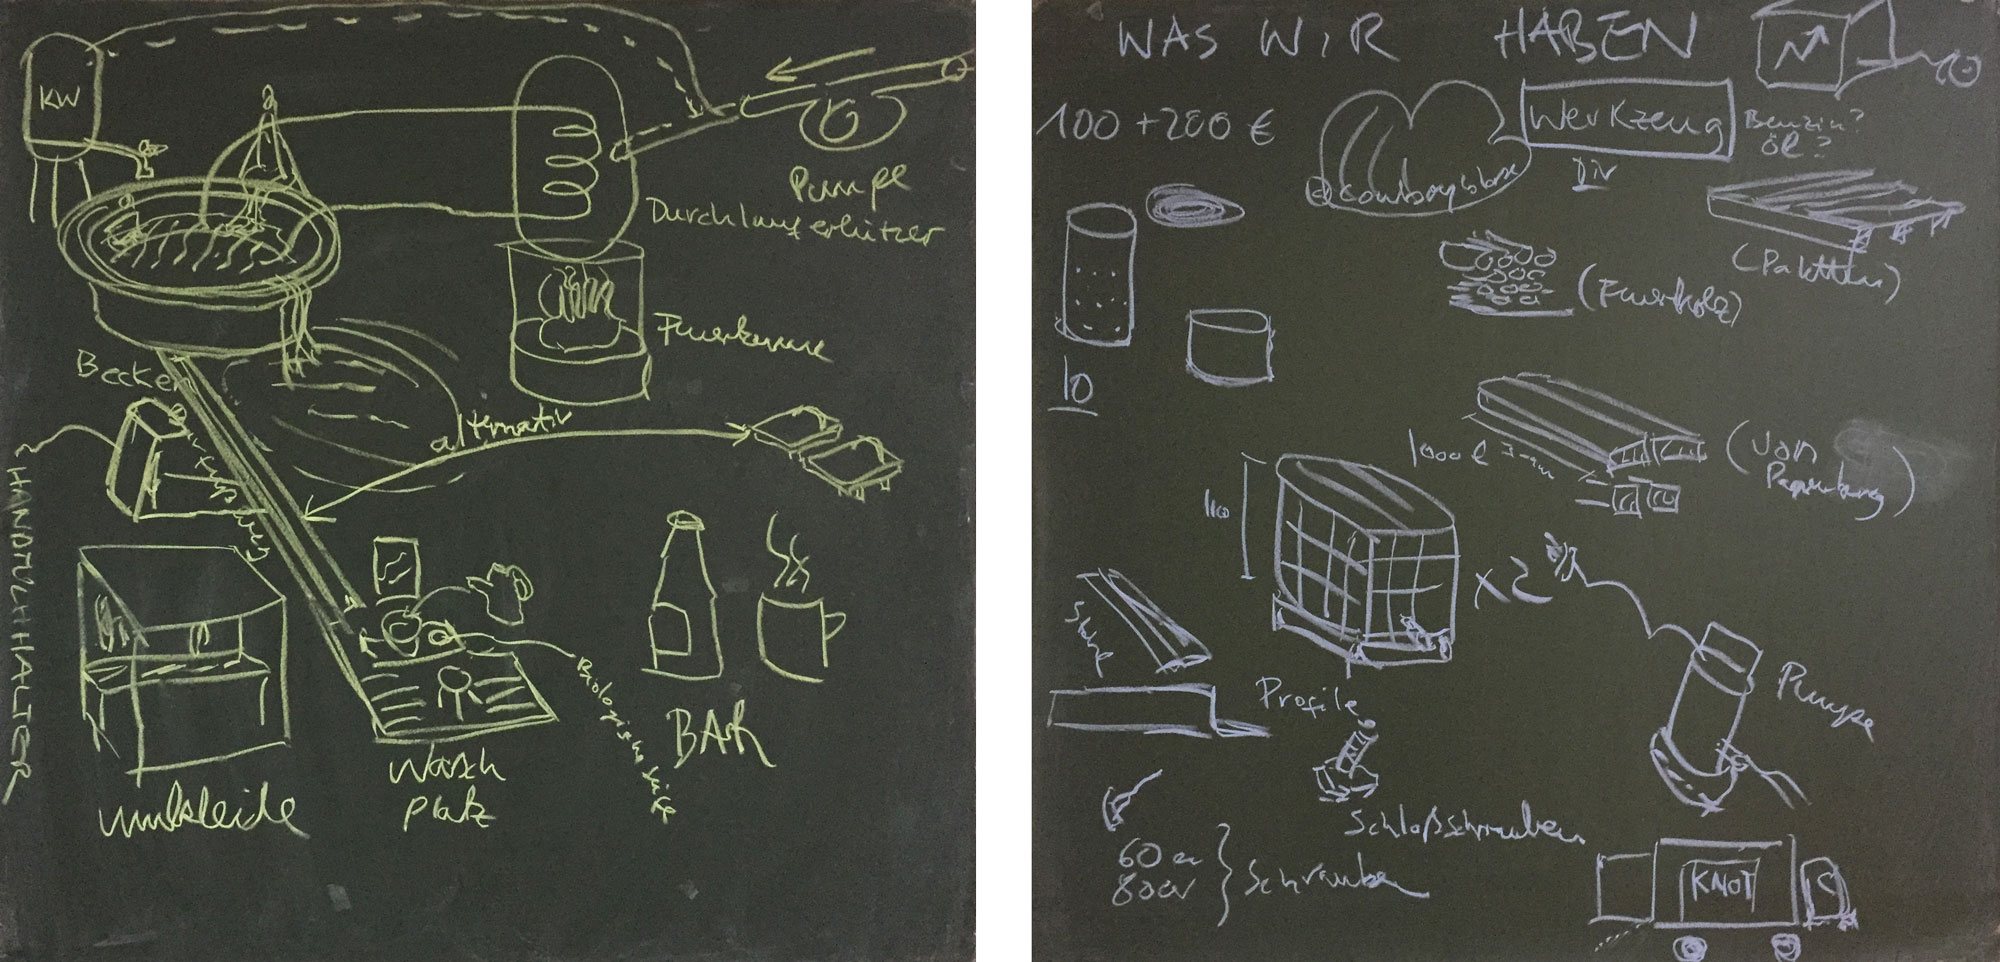 KW
Pumpe
Durchlauferhitzer
Feuertonne
Becken
alternativ
HANDTUCHHALTER
BAR
Umkleide
Wasch
platz
Biologische Seife
WAS WIR HABEN
100 + 200 €
Werkzeug
Div
Benzin?
Öl?
(Paletten)
(Feuerholz)
10
1000 l
(von
110
x2
Profile
Pumpe
Schloßschrauben
60er
80er
Schrauben
KNOT